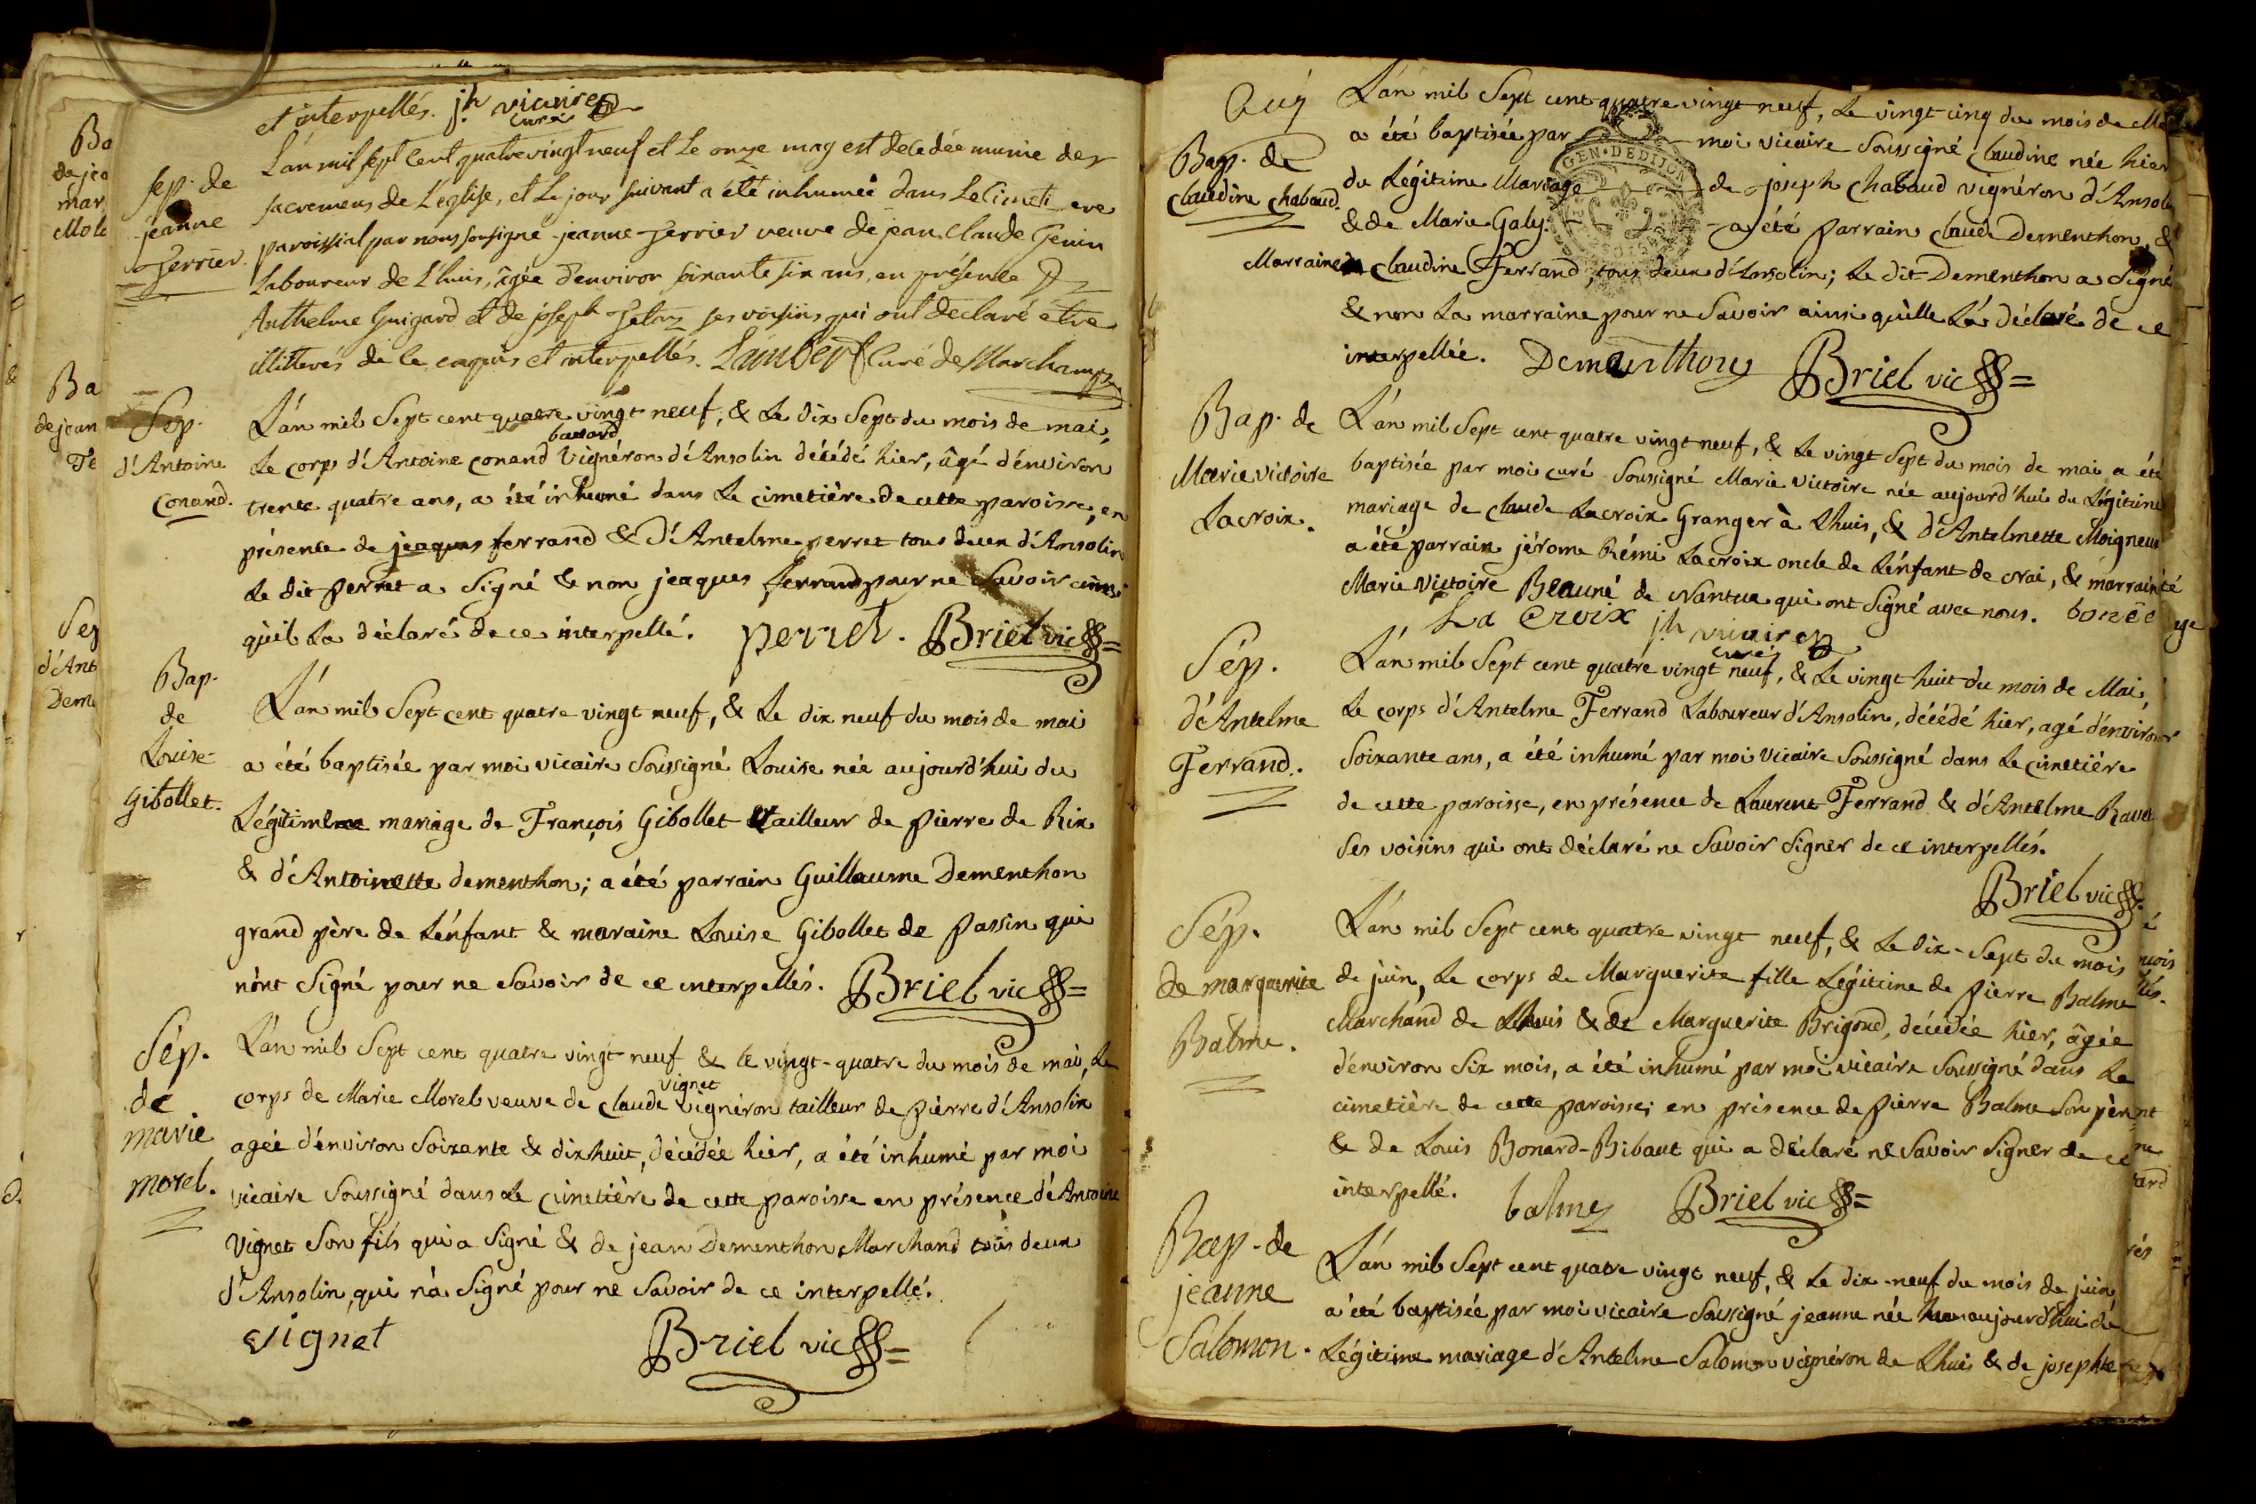 et interpellés. jh vicaire
curé
Sep. de
jeanne
Perrier.
L'an mil sept cent quatre vingt neuf et le onze may est decedée munie des
sacremens de l'eglise, et le jour suivant a été inhumée dans le cimetiere
paroissial par nous soussigné jeanne Perrier veuve de jean claude Genin
laboureur de Lhuis, âgée d'environ soixante six ans, en présence
Anthelme Guigard et de joseph ses voisins qui ont declaré être
illitterés de ce enquis et interpellés. Lambert Curé de Marchamp
Sép.
d'Antoine
Conand.
L'an mil Sept cent quatre vingt neuf, & le dix Sept du mois de mai,
bavard
le corps d'Antoine conand Vignéron d'Ansolin décédé hier, âgé d'environ
trente quatre ans, a été inhumé dans le cimetière de cette paroisse, en
présence de jeaques ferrand & d'Antelme perret tous deux d'Ansolin
le dit perret a Signé & non jeaques ferrand pour ne Savoir ainsi
qu'il la déclaré de ce interpellé. perret. Briel vic
Bap.
de
Louise
Gibollet.
L'an mil Sept cent quatre vingt neuf, & le dix neuf du mois de mai
a été baptisée par moi vicaire Soussigné Louise née aujourd'hui du
Légitime mariage de François Gibollet tailleur de pierre de Rix
& d'Antoinette dementhon; a été parrain Guillaume Dementhon
grand père de l'énfant & maraine Louise Gibollet de Passin qui
n'ont Signé pour ne Savoir de ce interpellés. Briel vic
Sép.
de
marie
morel.
L'an mil Sept cent quatre vingt neuf & le vingt-quatre du mois de mai, le
vignet
corps de Marie Morel veuve de claude vignéron tailleur de pierre d'Ansolin
agée d'énviron Soixante & dixhuit, décédée hier, a été inhumé par moi
vicaire Soussigné dans le cimetière de cette paroisse en présence d'Antoine
Vignet Son fils qui a Signé & de jean Dementhon Marchand tous deux
d'Ansolin, qui n'a Signé pour ne Savoir de ce interpellé.
vignet Briel vic
Bap. de
Claudine Chabaud.
L'an mil Sept cent quatre vingt neuf, le vingt cinq du mois de Mai
a été baptisée par moi vicaire Soussigné Claudine née hier
GEN. DE DIJON
du Légitime Mariage de joseph Chabaud vignéron d'Ansolin
& de Marie Galy. a été parrain claude Dementhon, &
Marraine Claudine Ferrand, tous deux d'Ansolin; le dit Dementhon a Signé
& non la marraine pour ne Savoir ainsi qu'elle l'a déclaré de ce
interpellée. Demanthon Briel vic
Bap. de
Marie victoire
Lacroix.
L'an mil Sept cent quatre vingt neuf, & le vingt Sept du mois de mai a été
baptisée par moi curé Soussigné Marie Victoire née aujourd'hui du Légitime
mariage de claude Lacroix Granger à Lhuis, & d'Antelmette Moigneux
a été parrain jérome Rémi Lacroix oncle de l'énfant de vrai, & marraine
Marie Victoire Beauné de Nantua qui ont Signé avec nous.
La Croix jh vicaire
curé
Sép.
d'Antelme
Ferrand.
L'an mil Sept cent quatre vingt neuf, & le vingt huit du mois de Mai,
le corps d'Antelme Ferrand Laboureur d'Ansolin, décédé hier, agé d'énviron
Soixante ans, a été inhumé par moi Vicaire Soussigné dans le cimetière
de cette paroisse, en présence de Laurent Ferrand & d'Antelme Ravet
Ses voisins qui ont déclaré ne Savoir Signer de ce interpellés.
Briel vic
Sép.
de marguerite
Balme.
L'an mil Sept cent quatre vingt neuf, & le dix-Sept du mois
de juin, le corps de Marguerite fille Légitime de pierre Balme
Marchand de Lhuis & de Marguerite Brigoud, décédée hier, âgée
d'énviron Six mois, a été inhumé par moi vicaire Soussigné dans le
cimetière de cette paroisse; en présence de pierre Balme Son père
& de Louis Bonard-Bibaut qui a déclaré ne Savoir Signer de ce
interpellé. balme Briel vic
Bap. de
jeanne
Salomon.
L'an mil Sept cent quatre vingt neuf, & le dix-neuf du mois de juin
a été baptisée par moi vicaire Soussigné jeanne née aujourd'hui du
Légitime mariage d'Antelme Salomon vignéron de Lhuis & de josephte